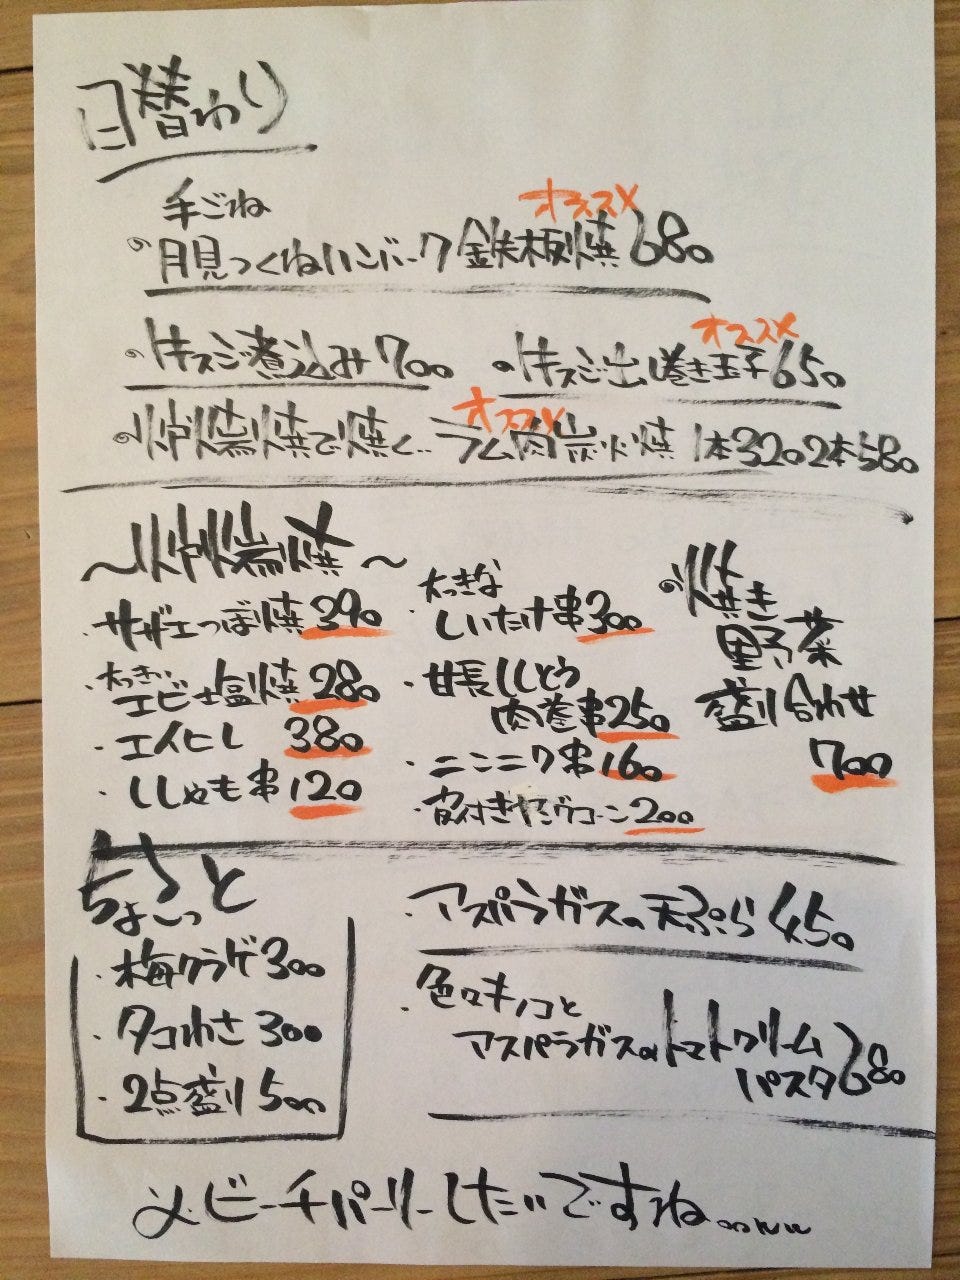 日替わり
手ごね
オススメ
月見つくねハンバーグ鉄板焼680
牛スジ煮込み700
オススメ
牛スジ出し巻き玉子650
オススメ
炉端焼で焼く..ラム肉炭火焼 1本320 2本580
〜炉端焼〜
・サザエつぼ焼390
・大っきいエビ塩焼280
・エイヒレ 380
・ししゃも串120
・大っきな
しいたけ串300
・甘長ししとう
肉巻串250
・ニンニク串160
・皮付きヤングコーン200
焼き
野菜
盛り合わせ
700
ちょこっと
・梅クラゲ300
・タコわさ300
・2点盛り500
・アスパラガスの天ぷら450
・色々キノコと
アスパラガスのトマトクリーム
パスタ680
ビーチパーリーしたいですね